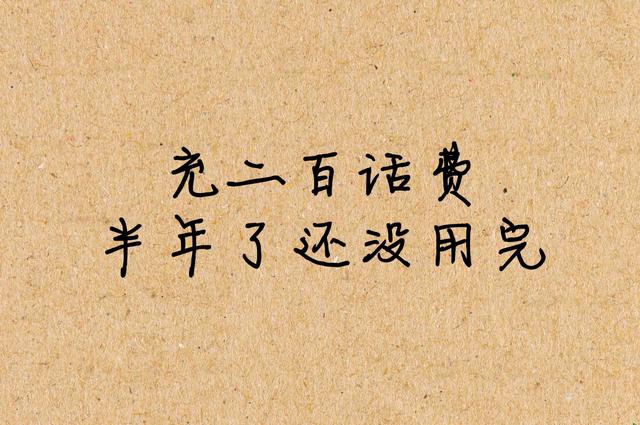 充二百话费
半年了还没用完